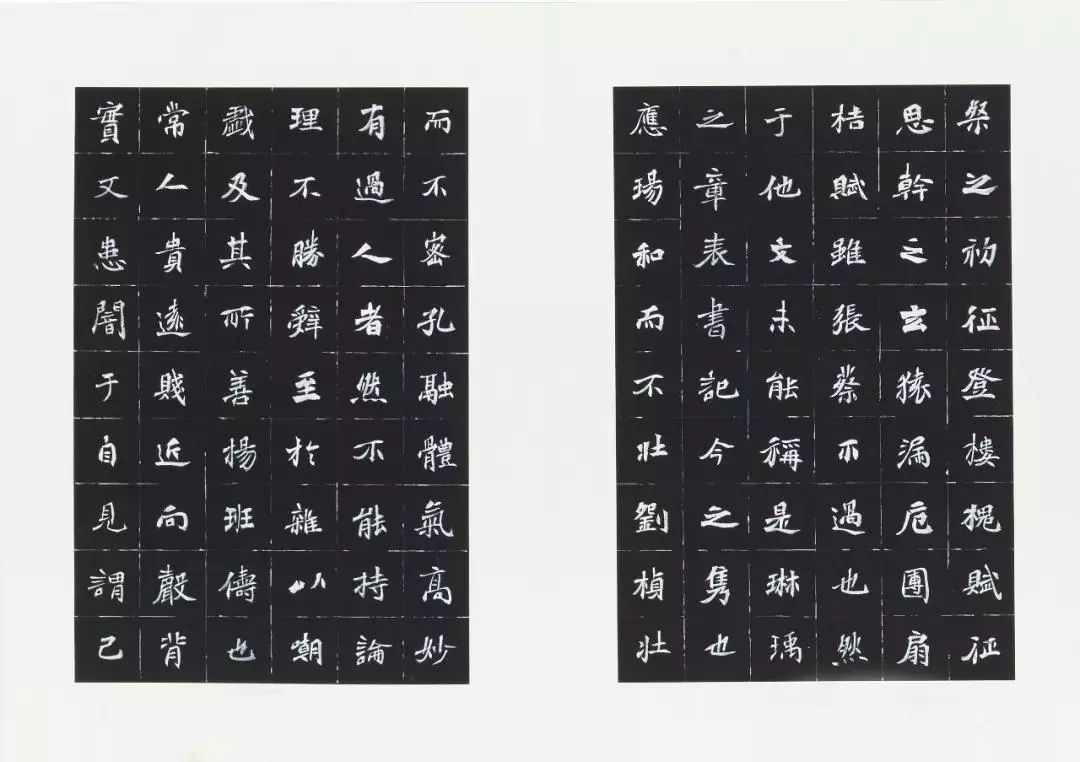 粲之初征登樓槐賦征
思幹之玄猿漏巵團扇
桔賦雖張蔡不過也然
于他文未能稱是琳瑀
之章表書記今之雋也
應瑒和而不壯劉楨壯
而不密孔融體氣高妙
有過人者然不能持論
理不勝辭至於雜以嘲
戲及其所善揚班儔也
常人貴遠賤近向聲背
實又患闇于自見謂己